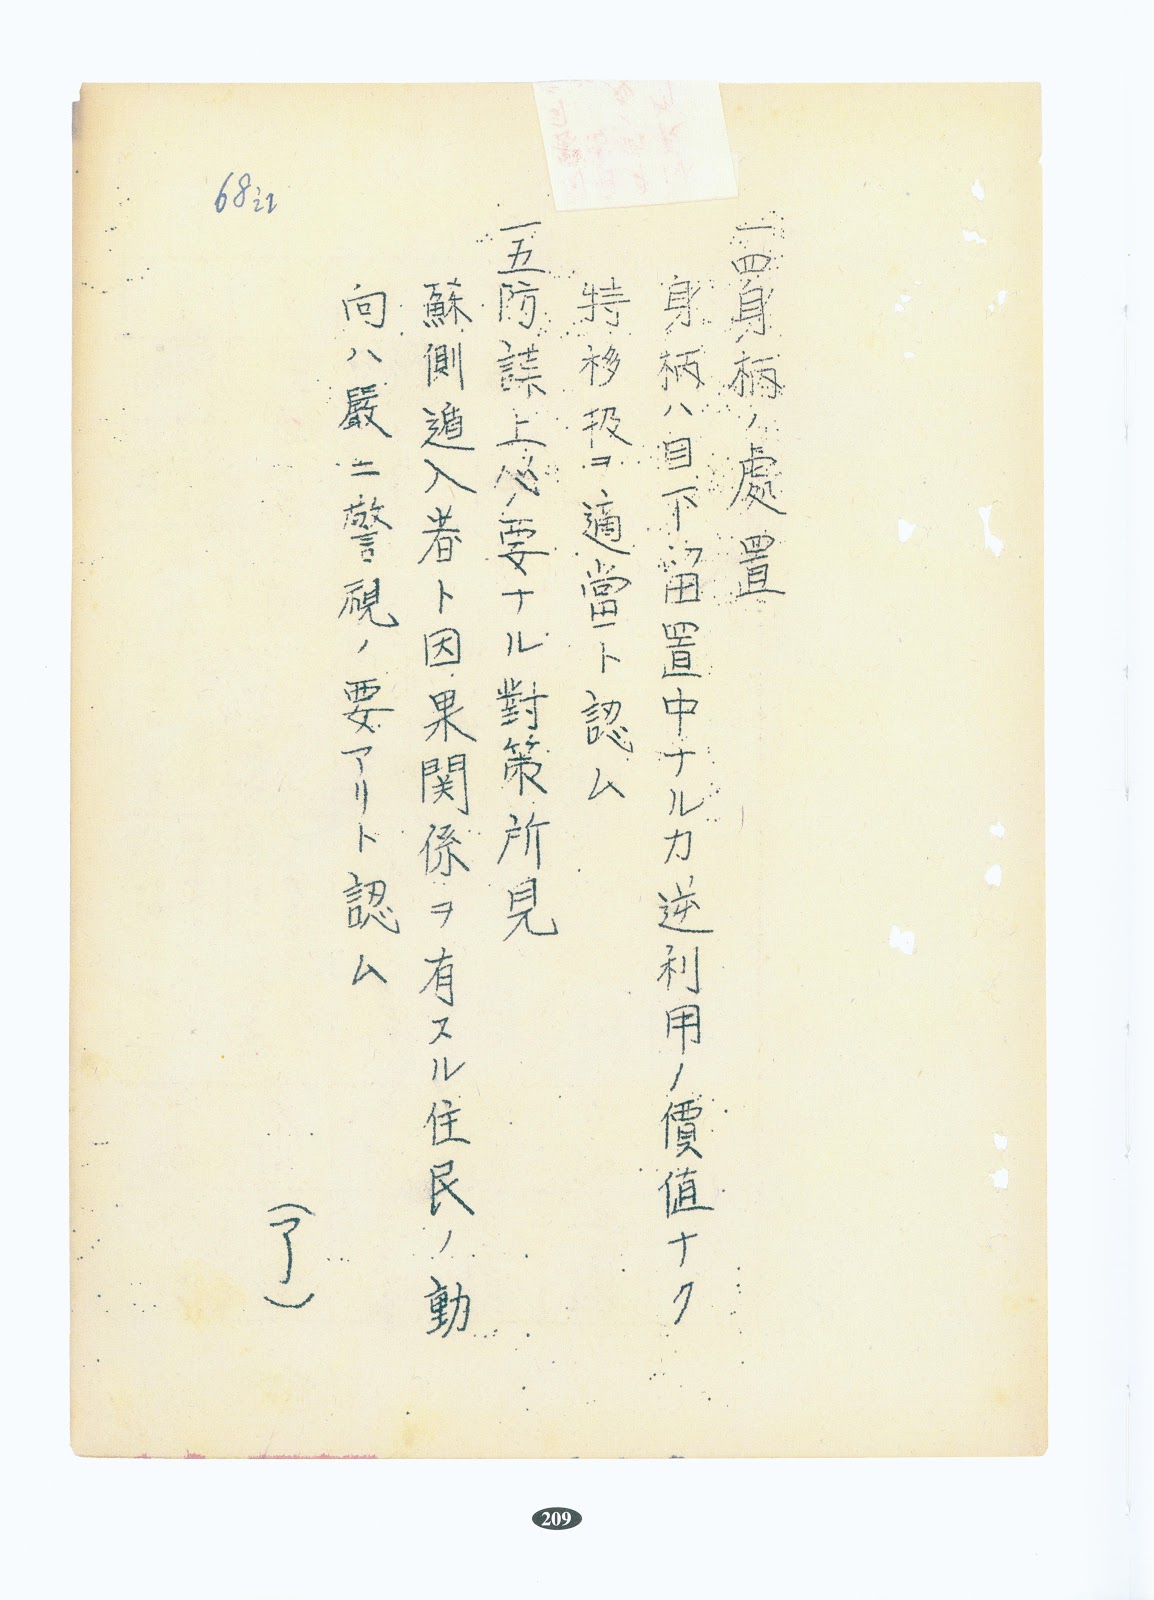 一四身柄ノ處置
身柄ハ目下留置中ナルカ逆利用ノ價値ナク
特移扱ヲ適當ト認ム
一五防諜上必要ナル對策所見
蘇側遁入者ト因果関係ヲ有スル住民ノ動
向ハ嚴ニ警視ノ要アリト認ム
(了)
68
209